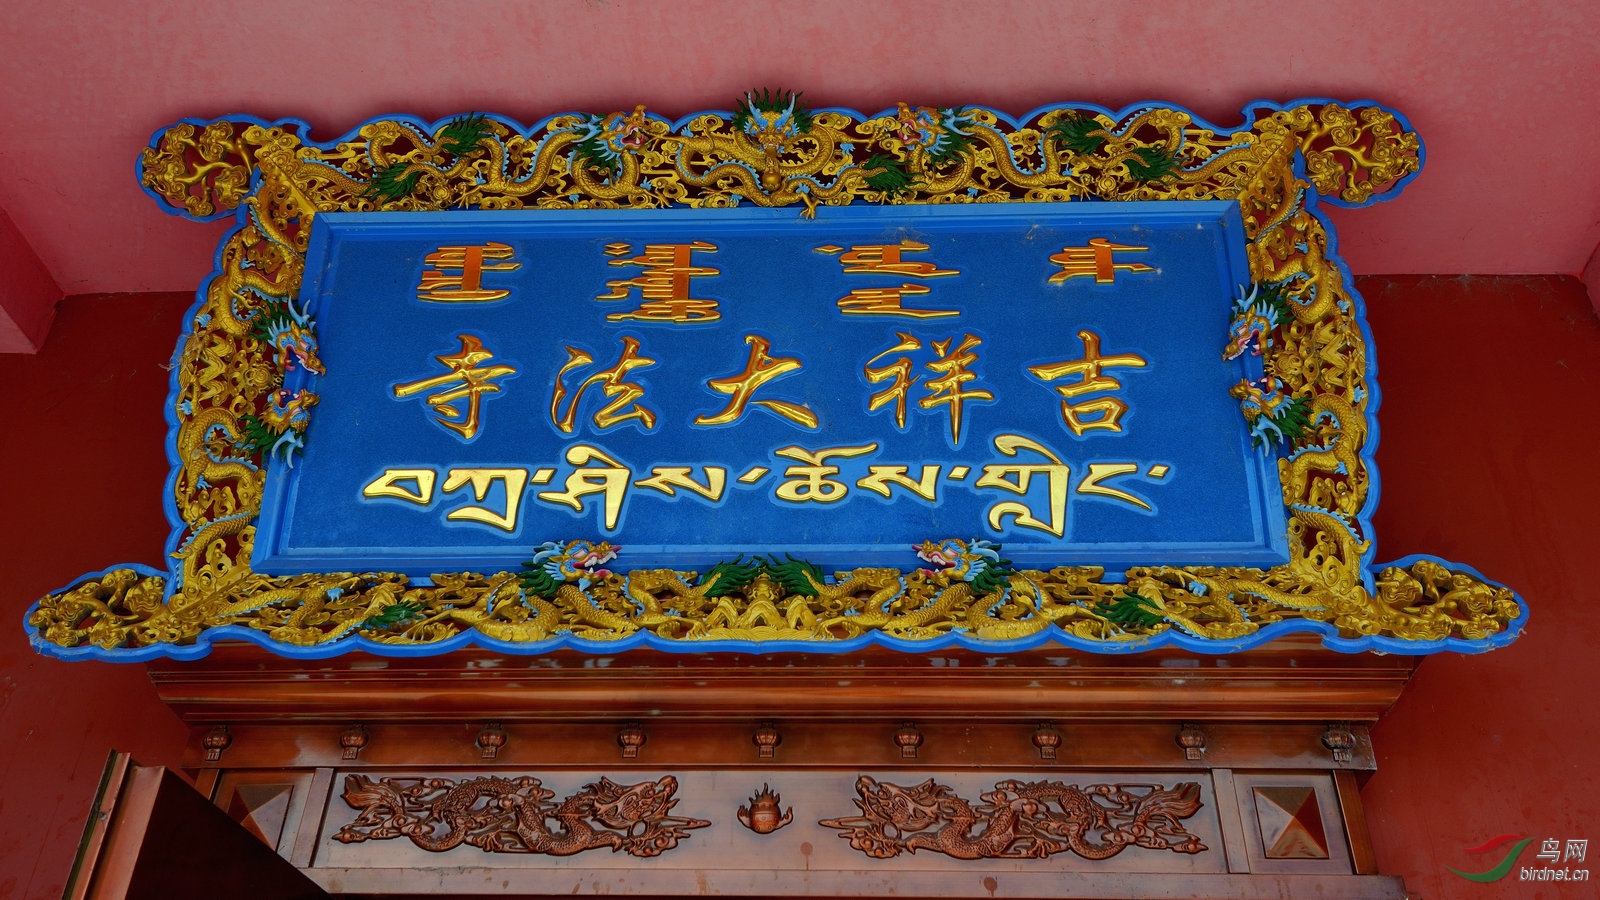 吉祥大法寺
བཀྲ་ཤིས་ཆོས་གླིང་
鸟网
birdnet.cn